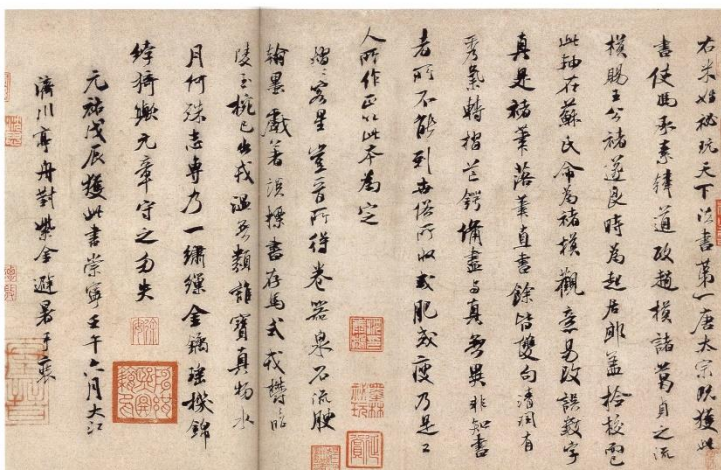 右米姓秘玩天下法書第一唐太宗既獲此
書使馮承素韓道政趙模諸葛貞之流
模賜王公褚遂良時為起居郎蓋撿校而已
此軸在蘇氏命為褚模觀意易改誤數字
真是褚筆落筆直書餘皆雙勾清潤有
秀氣轉摺芒鍔備盡与真無異非知書
者所不能到世俗所收或肥或瘦乃是工
人所作正以此本為定
熠〻客星豈晉所得卷器泉石流腴
翰墨戲著談標書存馬式欝昭
陵玉椀已出戎溫無類誰寶真物水
月何殊志專乃一繡繅金鐍瑤機錦
綍猗歟元章守之勿失
元祐戊辰獲此書崇寧壬午六月大江
濟川亭舟對紫金避暑手裝